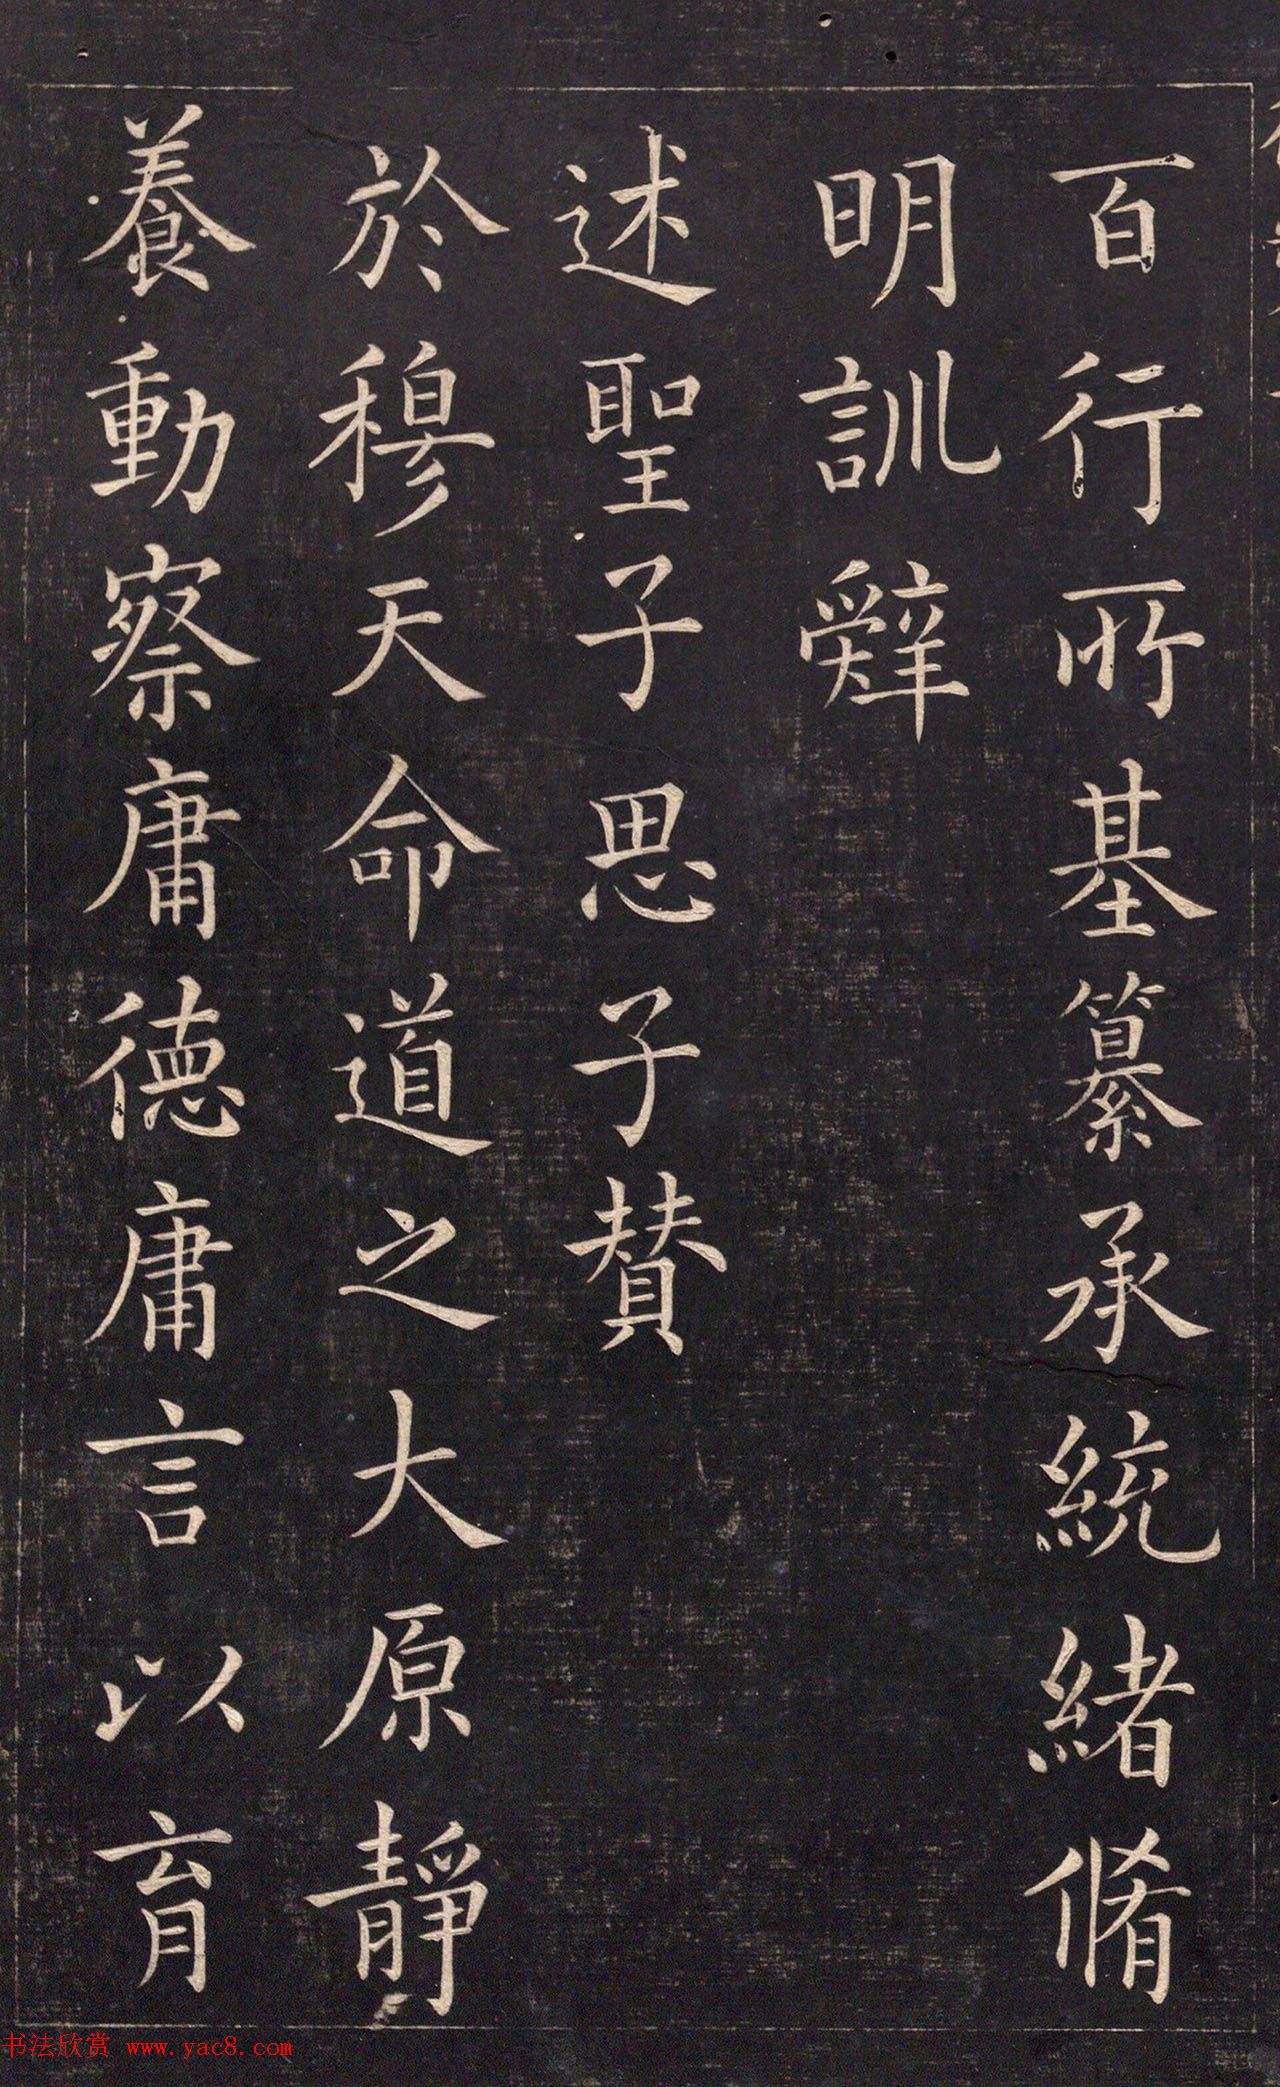 百行所基纂承統緒脩
明訓辤
述聖子思子贊
於穆天命道之大原靜
養動察庸德庸言以育
书法欣赏 www.yac8.com